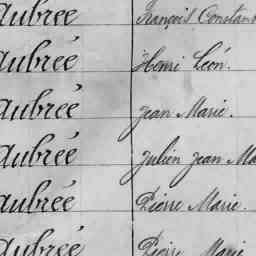 aubrée François Constan
aubrée Henri Léon.
aubrée Jean Marie.
aubrée Julien Jean Ma
aubrée Pierre Marie.
aubrée Pierre Marie